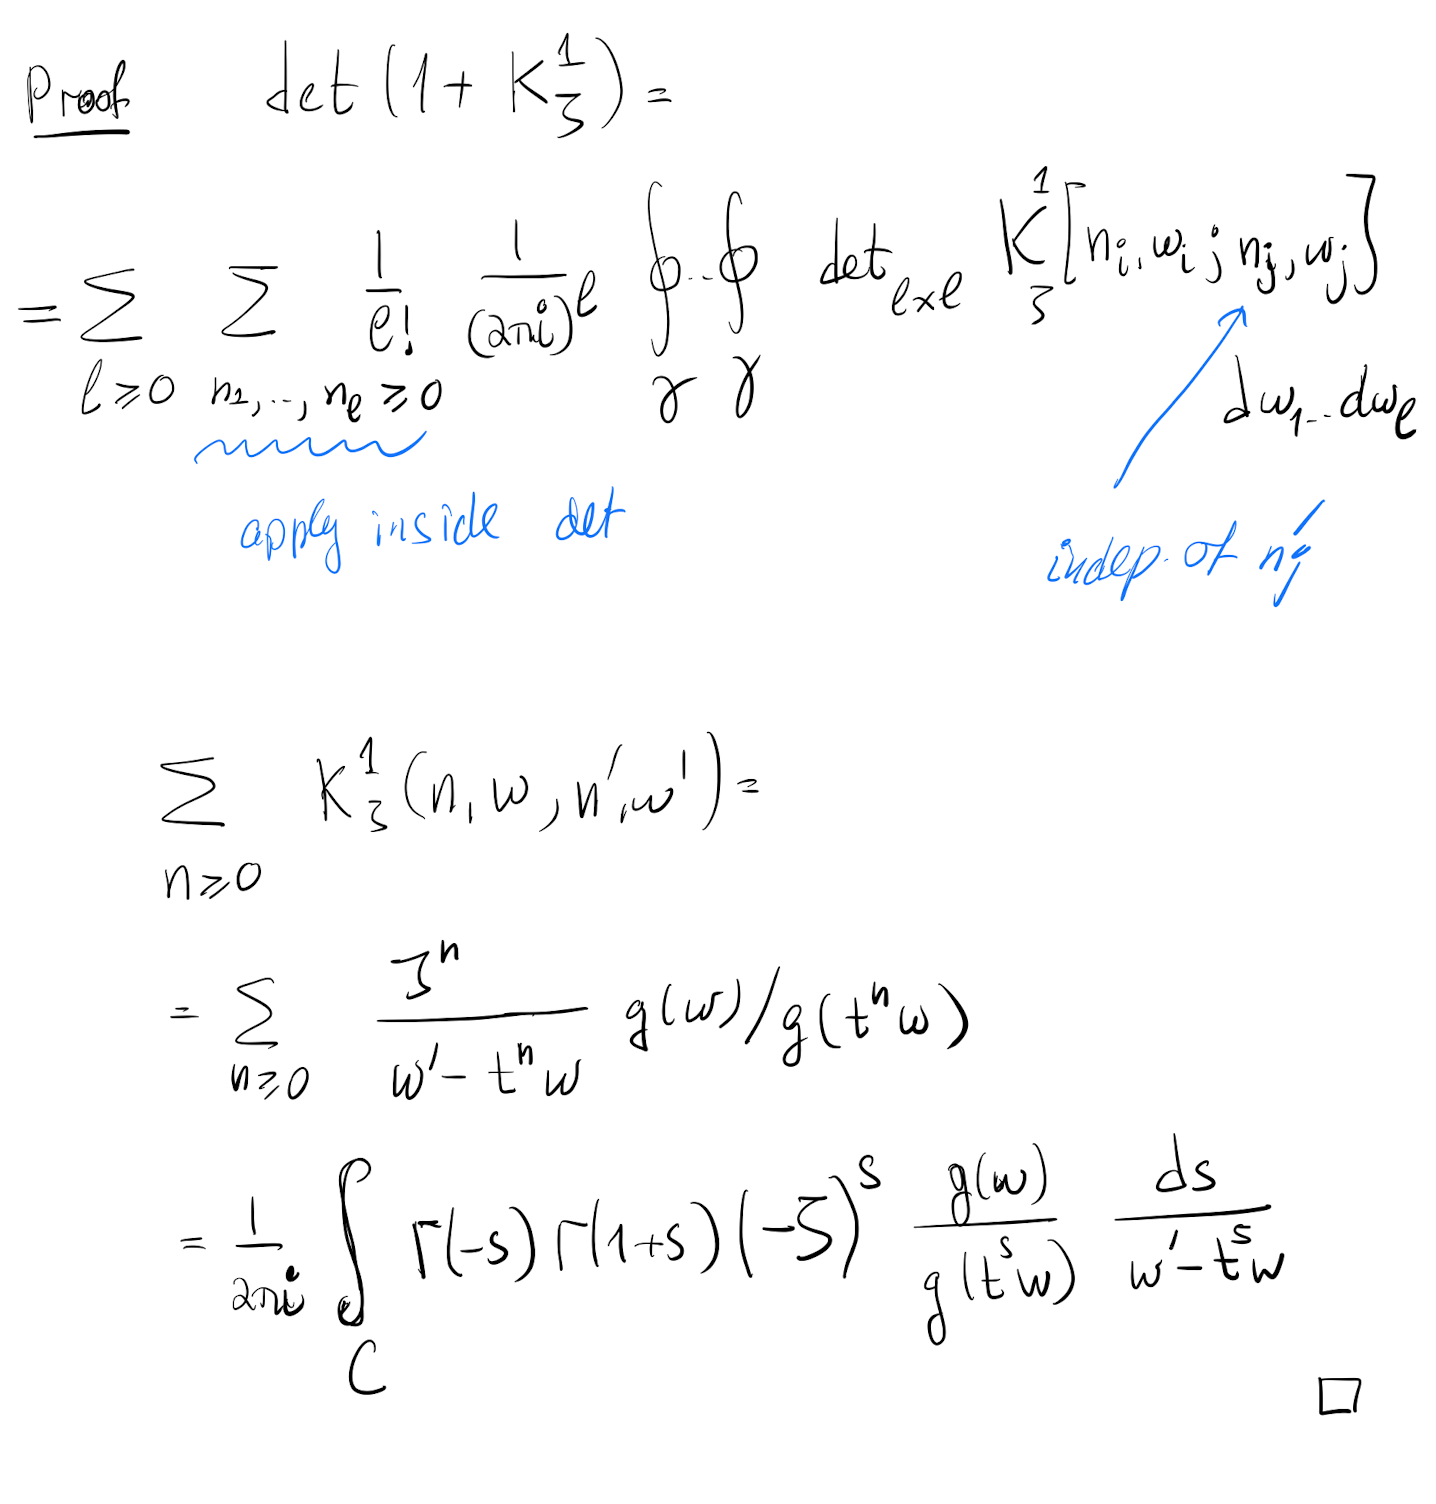 Proof det(1 + K^1_ζ) =
= Σ_{ℓ≥0} Σ_{n_1,..,n_ℓ≥0} 1/ℓ! 1/(2πi)^ℓ ∮_γ ... ∮_γ det_{ℓ×ℓ} K^1_ζ [n_i, w_i ; n_j, w_j]
dw_1...dw_ℓ
apply inside det
indep. of n'_j
Σ_{n≥0} K^1_ζ (n, w, n', w') =
= Σ_{n≥0} ζ^n / (w' - t^n w) g(w)/g(t^n w)
= 1/(2πi) ∫_C Γ(-s) Γ(1+s) (-ζ)^s g(w)/g(t^s w) ds/(w' - t^s w)
□